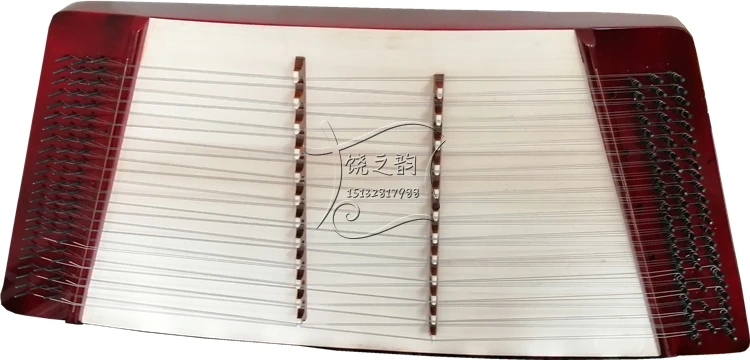 饶之韵
15132817988